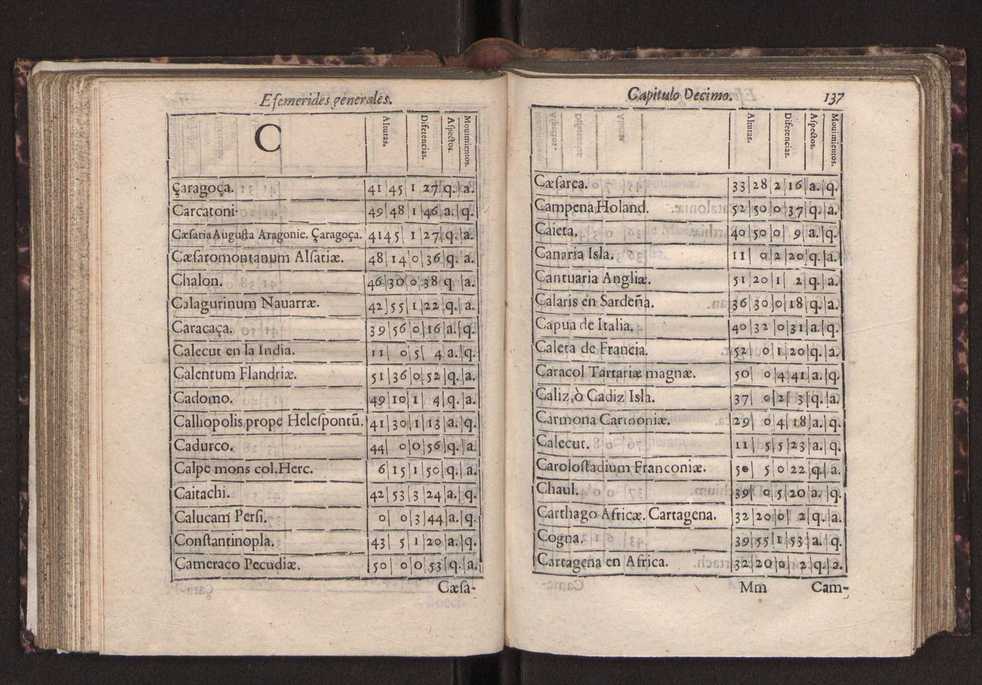 Efemerides generales.
C
Alturas. Diferencias. Aspectos. Mouimientos.
Çaragoça. 41 45 1 27 q. a.
Carcatoni 49 48 1 46 a. q.
Cæsaria Augusta Aragonie. Çaragoça. 41 45 1 27 q. a.
Cæsaromontanum Alsatiæ. 48 14 0 36 q. a.
Chalon. 46 30 0 38 q a.
Calagurinum Nauarræ. 42 55 1 22 q. a.
Caracaça. 39 56 0 16 a. q.
Calecut en la India. 11 0 5 4 a. q.
Calentum Flandriæ. 51 36 0 52 q. a.
Cadomo. 49 10 1 4 q. a.
Calliopolis prope Helespontū. 41 30 1 13 a. q.
Cadurco. 44 0 0 56 q. a.
Calpe mons col. Herc. 6 15 1 50 q. a.
Caitachi. 42 53 3 24 a. q.
Calucam Persi. 0 0 3 44 a. q.
Constantinopla. 43 5 1 20 a. q.
Cameraco Pecudiæ. 50 0 0 53 q. a.
Cæsa-
Capitulo Decimo. 137
Alturas. Diferencias. Aspectos. Mouimientos.
Cæsarea. 33 28 2 16 a. q.
Campena Holand. 52 50 0 37 q. a.
Caieta. 40 50 0 9 a. q.
Canaria Isla. 11 0 2 20 q. a.
Cantuaria Angliæ. 51 20 1 2 q. a.
Calaris en Sardeña. 36 30 0 18 q. a.
Capua de Italia. 40 32 0 31 a. q.
Caleta de Francia. 52 0 1 20 q. a.
Caracol Tartariæ magnæ. 50 0 4 41 a. q.
Caliz, ò Cadiz Isla. 37 0 2 3 q. a.
Carmona Carmoniæ. 29 0 4 18 a. q.
Calecut. 11 5 5 23 a. q.
Carolostadium Franconiæ. 50 5 0 22 q. a.
Chaul. 39 0 5 20 a. q.
Carthago Africæ. Cartagena. 32 20 0 2 q. a.
Cogna. 39 55 1 53 a. q.
Cartagena en Africa. 32 20 0 2 q. a.
Mm Cam-